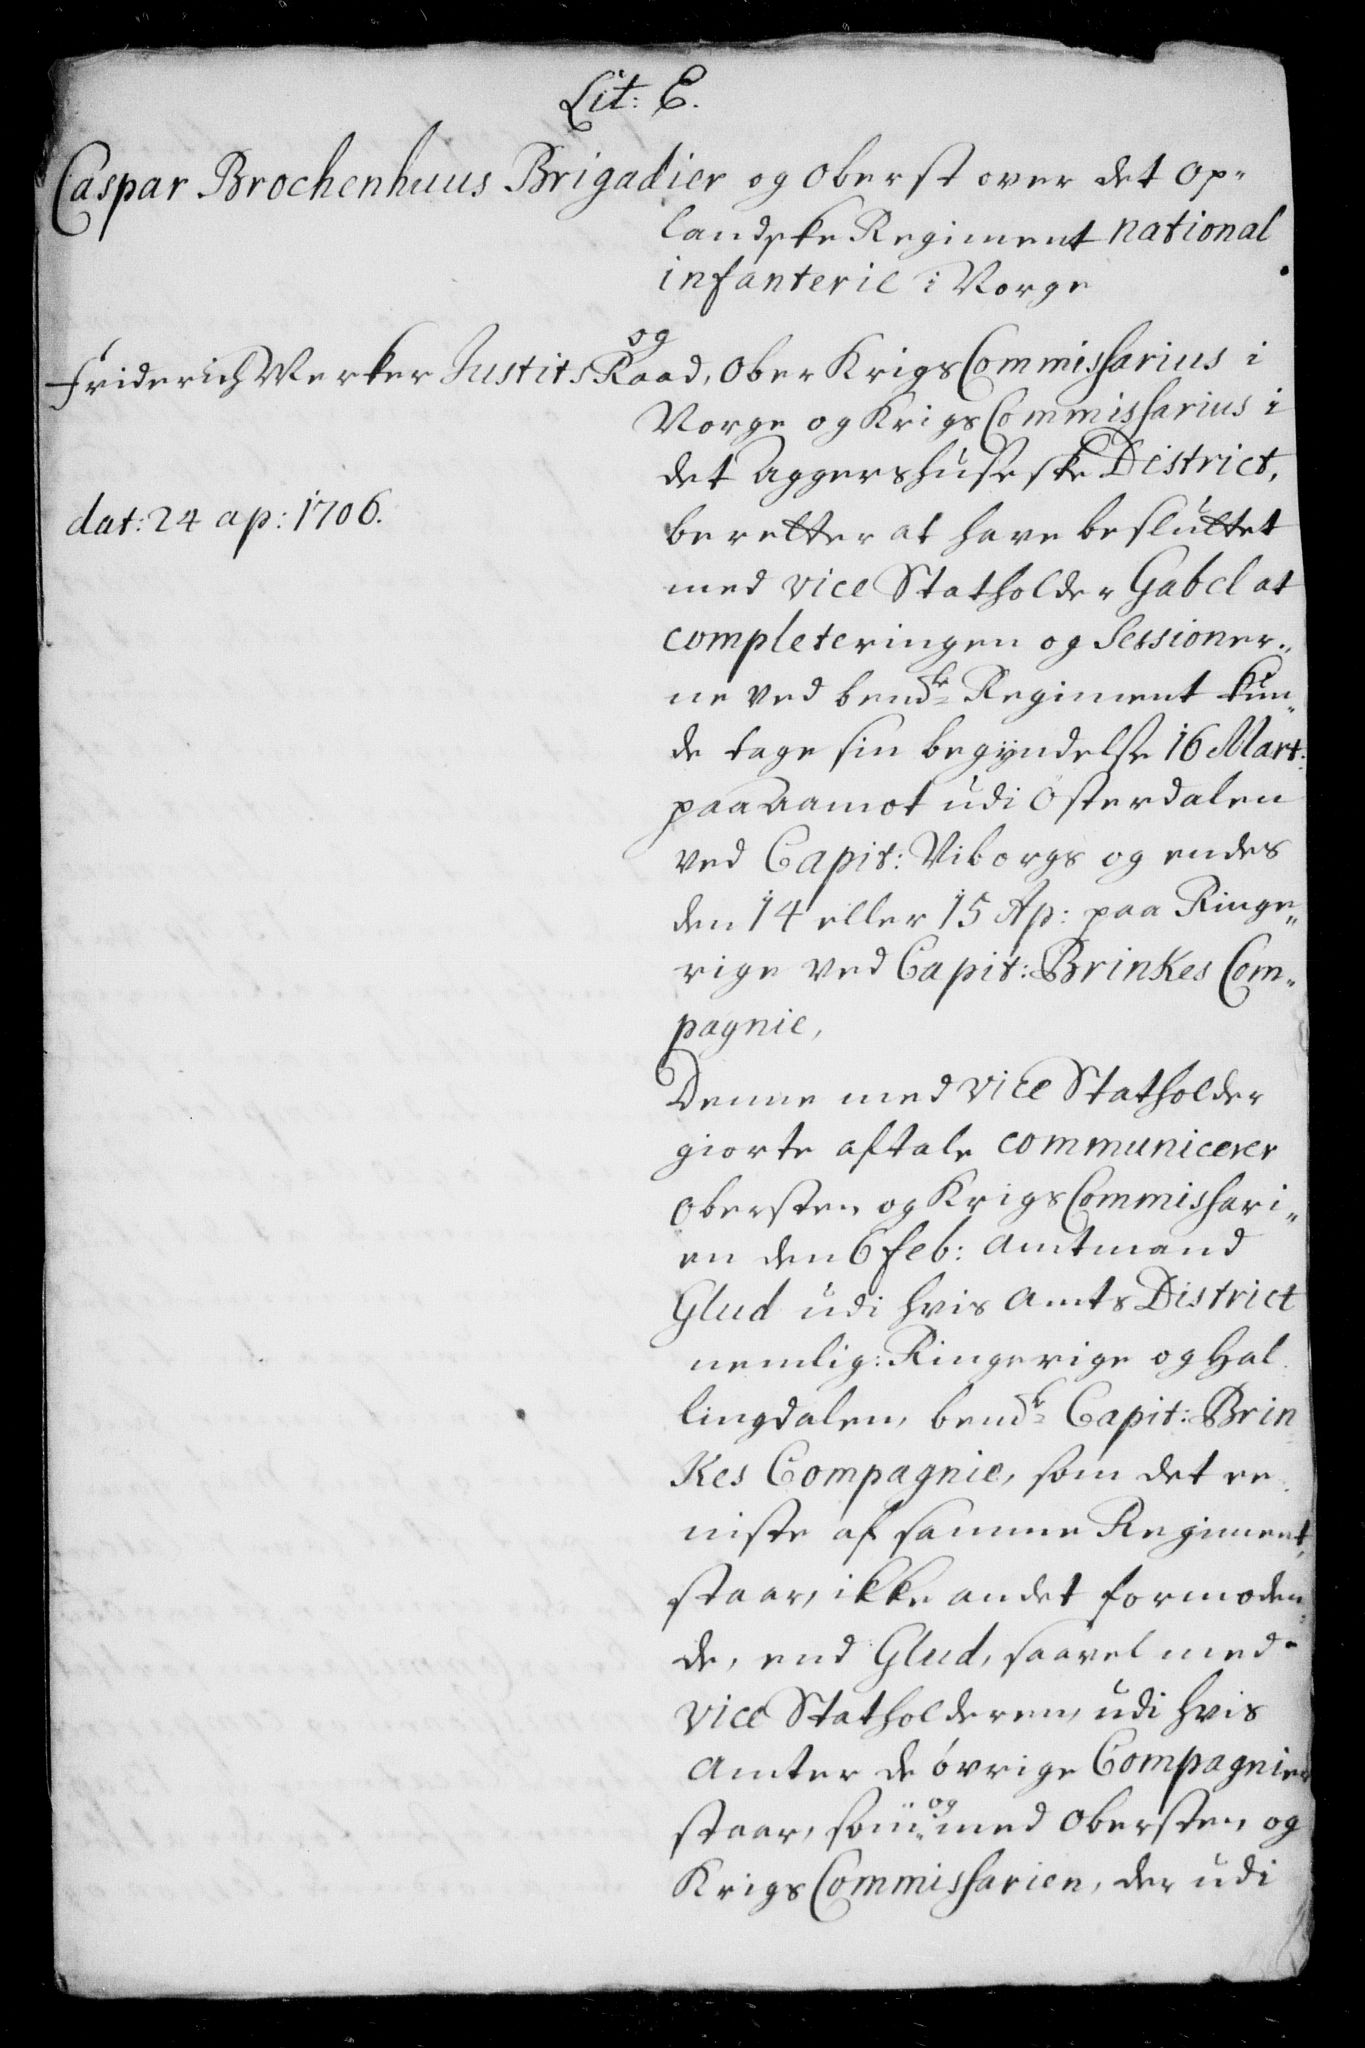 Lit: E.
Caspar Brochenhuus Brigadier og Oberst over det Op-
landske Regiment national
infanterie i Norge
og
Friderich Werker Justits Raad, Ober Krigs Commissarius i
Norge og Krigs Commissarius i
det Aggershuseske District,
dat: 24 ap: 1706.
beretter at have besluttet
med vice Statholder Gabel at
completeringen og Sessioner-
ne ved bemdte Regiment kun-
de tage sin begyndelse 16 Mart:
paa Aamot udi Østerdalen
ved Capit: Wiborgs og endes
den 14 eller 15 Ap: paa Ringe-
rige ved Capit: Brinkes Com-
pagnie,
Denne med vice Statholder
giorte aftale communicerer
Obersten og Krigs Commissari-
en den 6 feb: Amtmand
Glud udi hvis Amts District
nemlig: Ringerige og Hal
lingdalen, bemdte Capit: Brin
kes Compagnie, som det ee
niste af samme Regiment,
staar, ikke andet formoden-
de, end Glud, saavel med
vice Statholderen, udi hvis
Amter de øvrige Compagnier
staar, som og med Obersten og
Krigs Commissarien, der udi